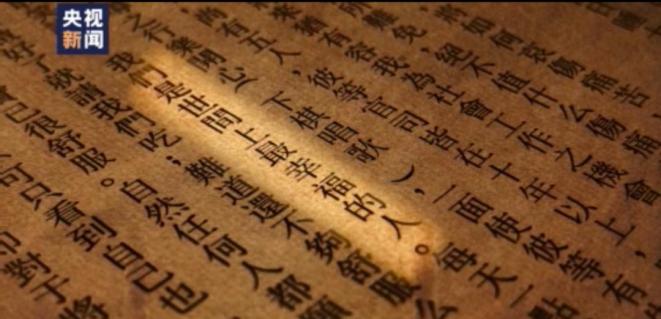 央视
新闻
如何哀傷痛苦
所難免，絕不值什么傷痛
來猶有容我，為社會工作之機會
尚有五人，彼等官司皆在十年以上，
之行樂（開心）下棋唱歌），一面使彼等有
我們是世間上最幸福的人。每天一點
就請我們吃；難道還不夠舒服么
已很舒服。自然任何人都願
可只看到自己也
對于將